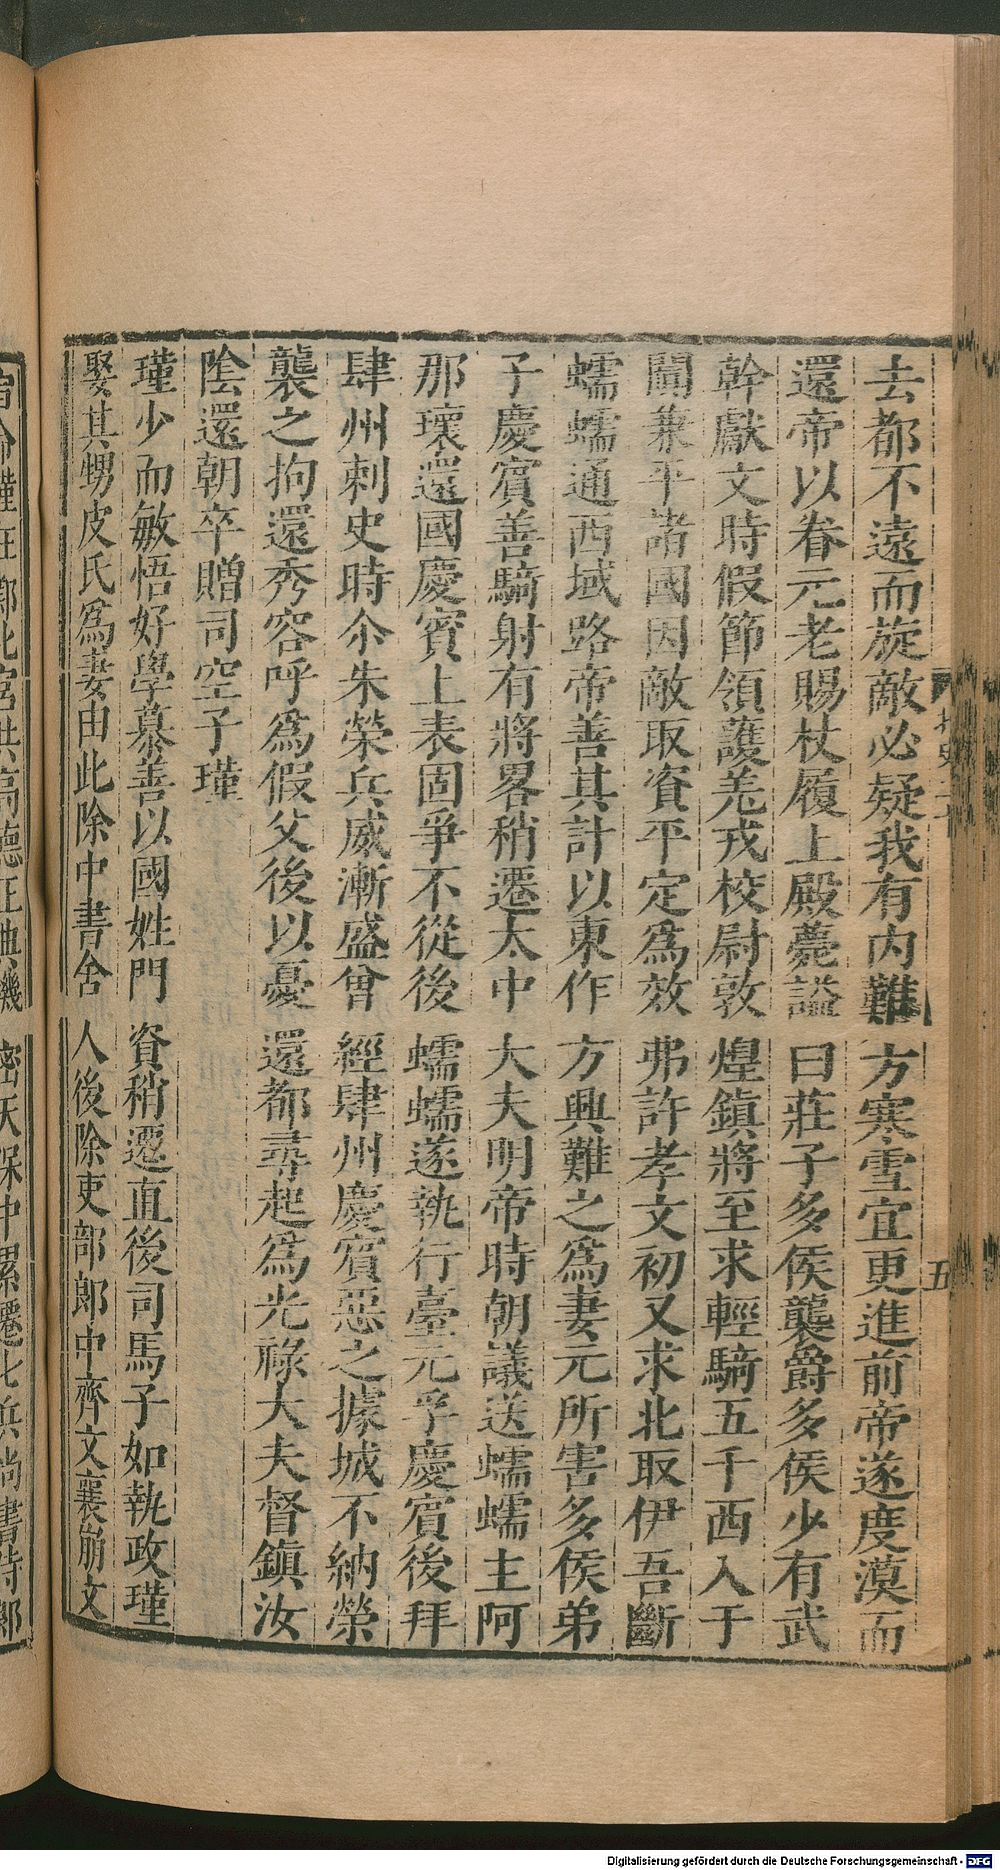 去都不遠而旋敵必疑我有内難方寒雪宜更進前帝遂度漠而
還帝以眷元老賜杖履上殿薨謚曰莊子多侯襲爵多侯少有武
幹獻文時假節領護羌戎校尉敦煌鎮將至求輕騎五千西入于
闐兼平諸國因敵取資平定爲效弗許孝文初又求北取伊吾斷
蠕蠕通西域路帝善其計以東作方興難之爲妻元所害多侯弟
子慶賔善騎射有將畧稍遷太中大夫明帝時朝議送蠕蠕主阿
那瓌還國慶賔上表固爭不從後蠕蠕遂執行臺元孚慶賔後拜
肆州刺史時尒朱榮兵威漸盛曾經肆州慶賔惡之據城不納榮
襲之拘還秀容呼爲假父後以憂還都尋起爲光祿大夫督鎮汝
陰還朝卒贈司空子瑾
瑾少而敏悟好學慕善以國姓門資稍遷直後司馬子如執政瑾
娶其甥皮氏爲妻由此除中書舍人後除吏部郎中齊文襄崩文
五
Digitalisierung gefördert durch die Deutsche Forschungsgemeinschaft - DFG